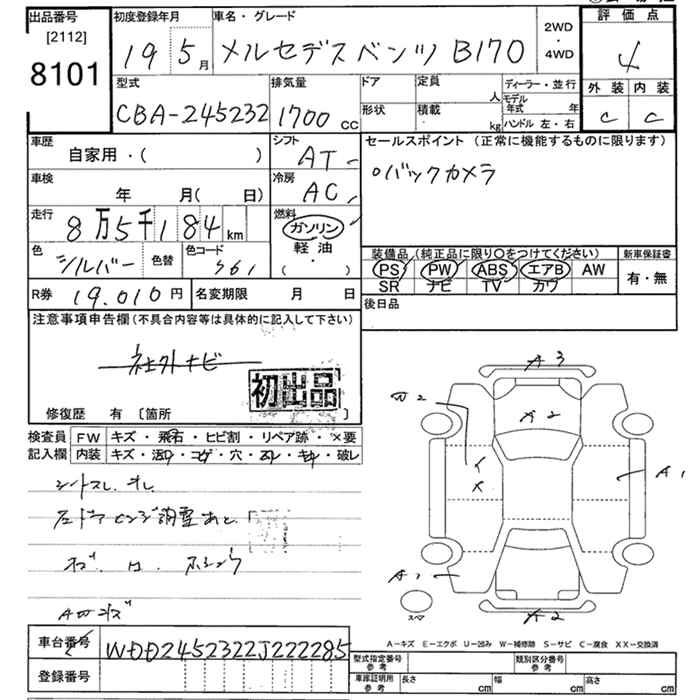 出品番号
[2112]
8101
初度登録年月
19 5月
車名・グレード
メルセデスベンツ B170
2WD
・
4WD
評価点
4
外装 内装
C C
型式
CBA-245232
排気量
1700 CC
ドア
形状
定員 人
積載 kg
ディーラー・並行
モデル年式 年
ハンドル 左・右
車歴
自家用・( )
シフト
AT
セールスポイント (正常に機能するものに限ります)
○バックカメラ
車検
年 月( 日)
冷房
AC
走行
8万5千184 km
燃料
ガソリン
軽油
( ・ )
色
シルバー
色替
色コード
361
装備品 (純正品に限り○をつけてください)
PS PW ABS エアB AW
SR ナビ TV カワ
新車保証書
有・無
R券 19,010円
名変期限 月 日
後日品
注意事項申告欄 (不具合内容等は具体的に記入して下さい)
社外ナビ
初出品
修復歴 有 〔箇所 〕
検査員記入欄
FW キズ・飛石・ヒビ割・リペア跡・×要
内装 キズ・汚れ・コゲ・穴・スレ・キレ・破レ
シートスレ、オレ
A3
W2
X2
A1
A1
A2
スペア
A-キズ E-エクボ U-凹み W-補修跡 S-サビ C-腐食 XX-交換済
車台番号
WDD2452322J222285
登録番号
型式指定番号 参考
類別区分番号 参考
車庫証明用 参考
長さ cm
幅 cm
高さ cm